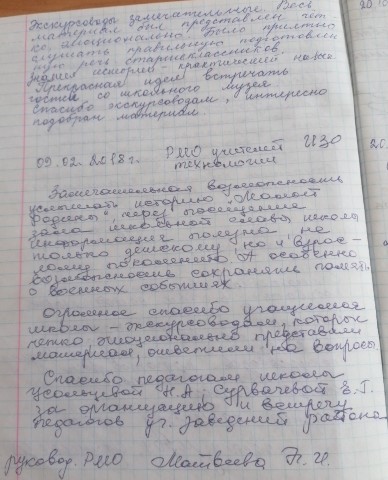 Экскурсоводы замечательные. Весь
материал был представлен чет-
ко, эмоционально. Было приятно
слушать правильную подготовлен
ную речь старшеклассников.
Прекрасная идея встречать
гостей со школьного музея
Спасибо экскурсоводам, интересно
подобран материал.
09.02.2018г. РМО учителей ИЗО
технологии
Замечательная возможность
услышать историю "Малой
Родины" через посещение
зала школьной славы школы
Информация получна не
только детскому но и взрос-
лому поколению. А особенно
возможность сохранять память
о военных событиях
Огромное спасибо учащимся
школы - экскурсоводам, которые
четко, эмоционально представили
материал, ответили на вопросы
Спасибо педагогам школы
Усольцевой Н.А., Сурвачевой Е.Г.
за организацию и встречу
педагогов уч. заведений района
руковод. РМО Матвеева Н.И.